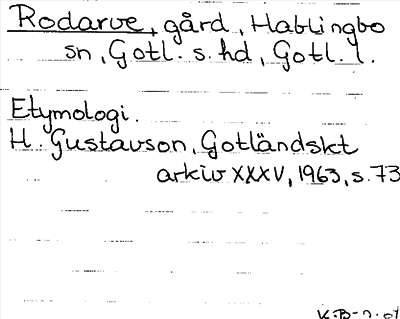 Rodarve, gård, Hablingbo
sn, Gotl. s. hd, Gotl. l.
Etymologi.
H. Gustavson, Gotländskt
arkiv XXXV, 1963, s. 73